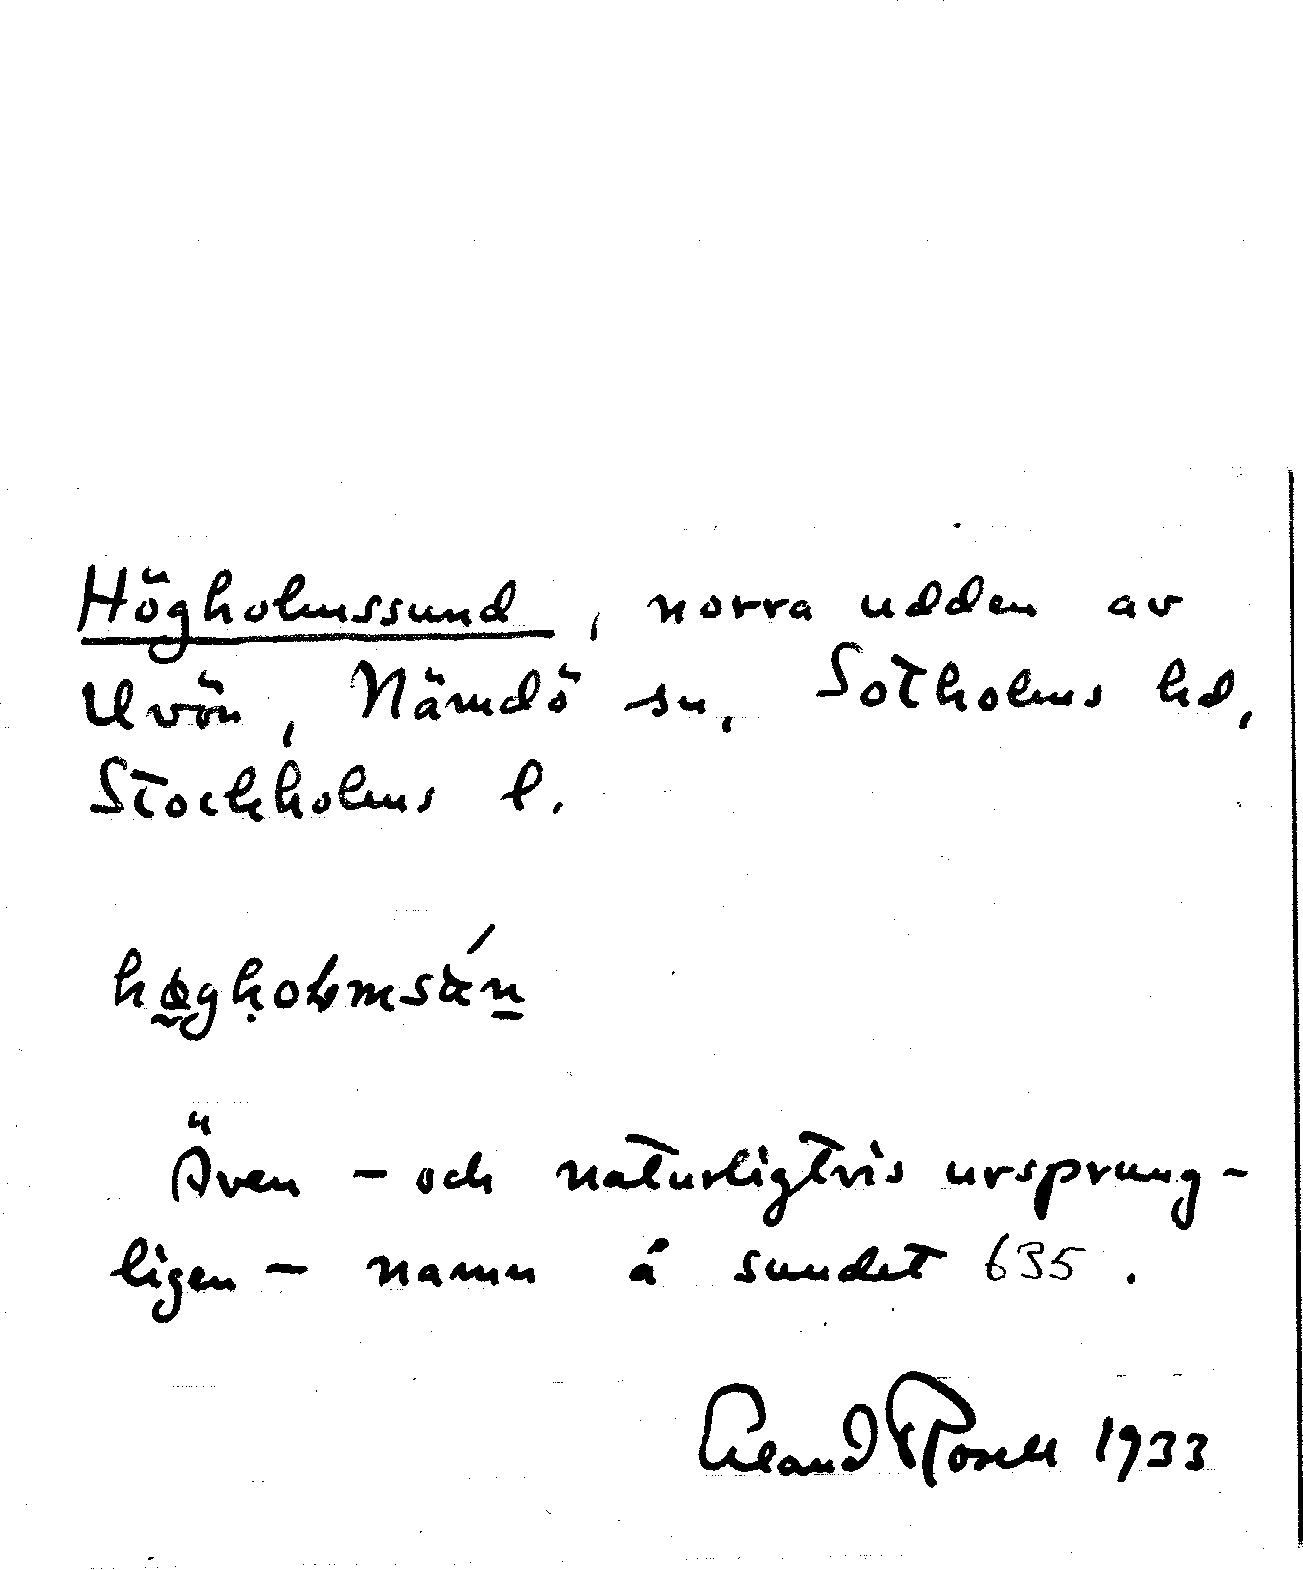 Högholmssund, norra udden av
Uvön, Nämdö sn, Sotholms hd,
Stockholms l.
Även - och naturligtvis ursprung-
ligen - namn å sundet 635.
Erland Rosell 1933